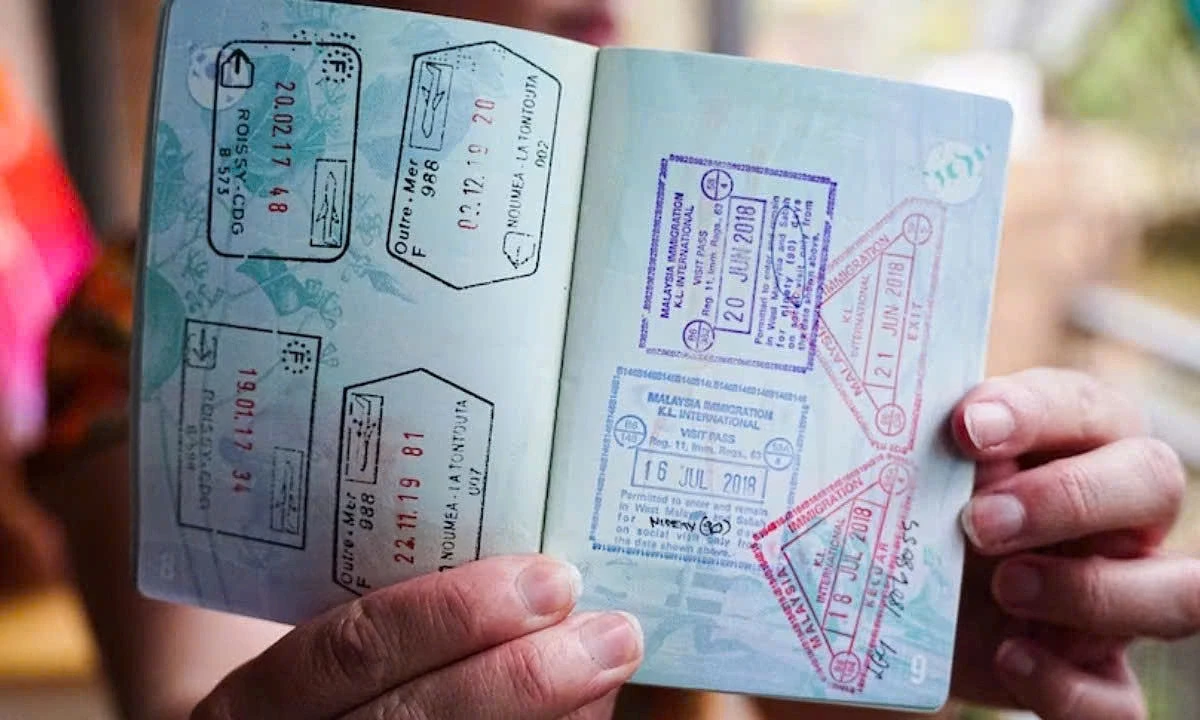 F
20.02.17 48
ROISSY-CDG
B 573
Outre-Mer
F 988
20
NOUMEA-LA TONTOUTA
002
F
19.01.17 34
ROISSY-CDG
Outre-Mer
F 988
22.11.19 81
NOUMEA-LA TONTOUTA
007
8
MALAYSIA IMMIGRATION
K.L. INTERNATIONAL
VISIT PASS
Reg. 11, Imm. Regs., 63
20 JUN 2018
Permitted to enter and remain
in West Malaysia and Sabah
for ninety (90) days
on social visit only from
the date shown above.
IMMIGRATION
K.L.
INTERNATIONAL
21 JUN 2018
EXIT
MALAYSIA
MALAYSIA IMMIGRATION
K.L. INTERNATIONAL
VISIT PASS
Reg. 11, Imm. Regs., 63
16 JUL 2018
Permitted to enter and remain
in West Malaysia Sabah
for NINETY (90) da
on social visit only from
the date shown above.
IMMIGRATION
K.L.
INTERNATIONAL
18 JUL 2018
KELUAR
MALAYSIA
9